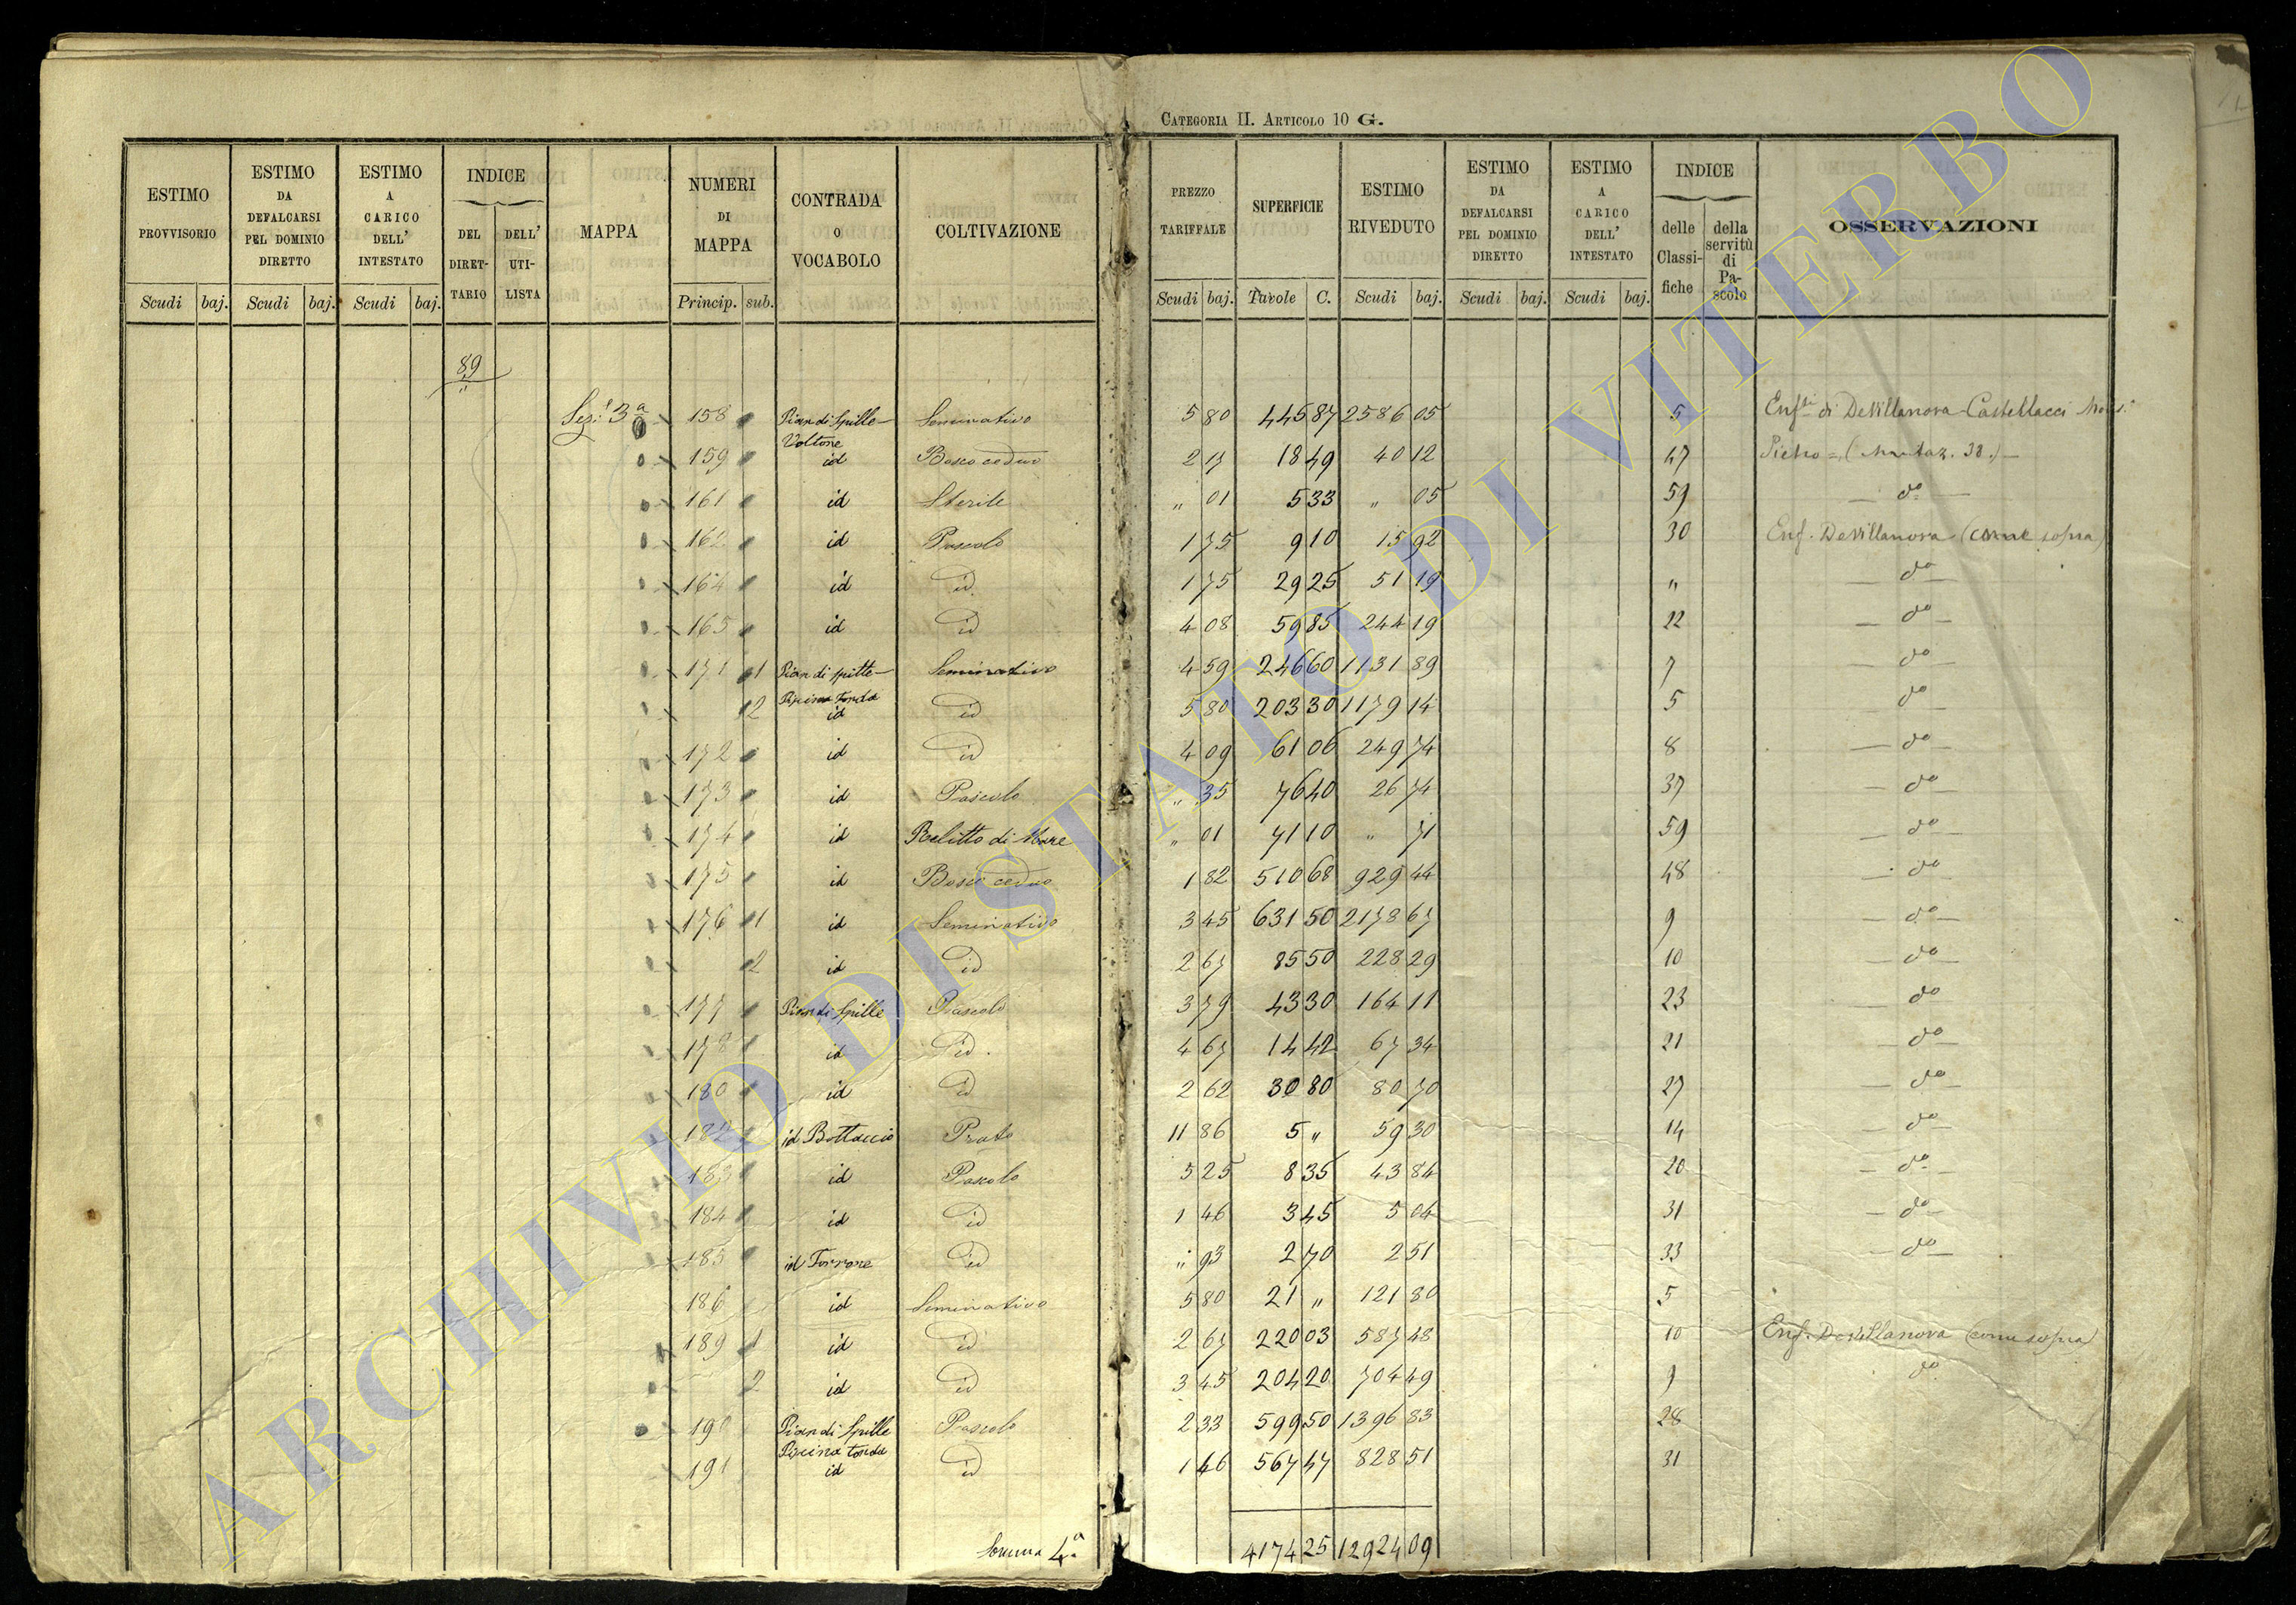 CATEGORIA II. ARTICOLO 10 G.
ESTIMO PROVVISORIO Scudi baj.
ESTIMO DA DEFALCARSI PEL DOMINIO DIRETTO Scudi baj.
ESTIMO A CARICO DELL' INTESTATO Scudi baj.
INDICE DEL DIRET-TARIO DELL' UTI-LISTA
MAPPA
NUMERI DI MAPPA Princip. sub.
CONTRADA O VOCABOLO
COLTIVAZIONE
PREZZO TARIFFALE Scudi baj.
SUPERFICIE Tavole C.
ESTIMO RIVEDUTO Scudi baj.
ESTIMO DA DEFALCARSI PEL DOMINIO DIRETTO Scudi baj.
ESTIMO A CARICO DELL' INTESTATO Scudi baj.
INDICE delle Classi-fiche della servitù di Pa-scolo
OSSERVAZIONI
89
"
Sez.e 3a 158 Pian di Spille Voltone Seminativo 5 80 445 87 2586 05 5 Enfti di DeVillanova Castellacci
159 id Bosco ceduo 2 17 18 49 40 12 47 Pietro = (Mutaz. 38.)
161 id Sterile " 01 5 33 " 05 59 do
162 id Pascolo 1 75 9 10 15 92 30 Enf. DeVillanova (come sopra)
164 id id 1 75 29 25 51 19 " do
165 id id 4 08 59 85 244 19 22 do
171 1 Pian di spille Piscina Tonda Seminativo 4 59 246 60 1131 89 7 do
2 id id 5 80 203 30 1179 14 5 do
172 id id 4 09 61 06 249 74 8 do
173 id Pascolo " 35 76 40 26 74 37 do
174 id Relitto di Mare " 01 71 10 " 71 59 do
175 id Bosco ceduo 1 82 510 68 929 44 48 do
176 1 id Seminativo 3 45 631 50 2178 67 9 do
2 id id 2 67 85 50 228 29 10 do
177 Pian di Spille Pascolo 3 79 43 30 164 11 23 do
178 id id 4 67 14 42 67 34 21 do
180 id id 2 62 30 80 80 70 27 do
182 id Bottaccio Prato 11 86 5 " 59 30 14 do
183 id Pascolo 5 25 8 35 43 84 20 do
184 id id 1 46 3 45 5 04 31 do
185 id Torrone id " 93 2 70 2 51 33 do
186 id Seminativo 5 80 21 " 121 80 5
189 1 id id 2 67 220 03 587 48 10 Enf. DeVillanova (come sopra)
2 id id 3 45 204 20 704 49 9 do
190 Pian di Spille Piscina tonda Pascolo 2 33 599 50 1396 83 28
191 id id 1 46 567 47 828 51 31
Somma 4a 4174 25 12924 09
ARCHIVIO DI STATO DI VITERBO